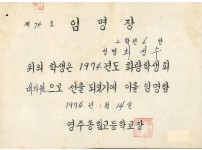 제 74 호
임명장
2학년 6반
성명 최성수
위의 학생은 1974년도 화랑학생회
대의원으로 선출 되었기에 이를 임명함
1974년 3월 14일
영주종합고등학교장